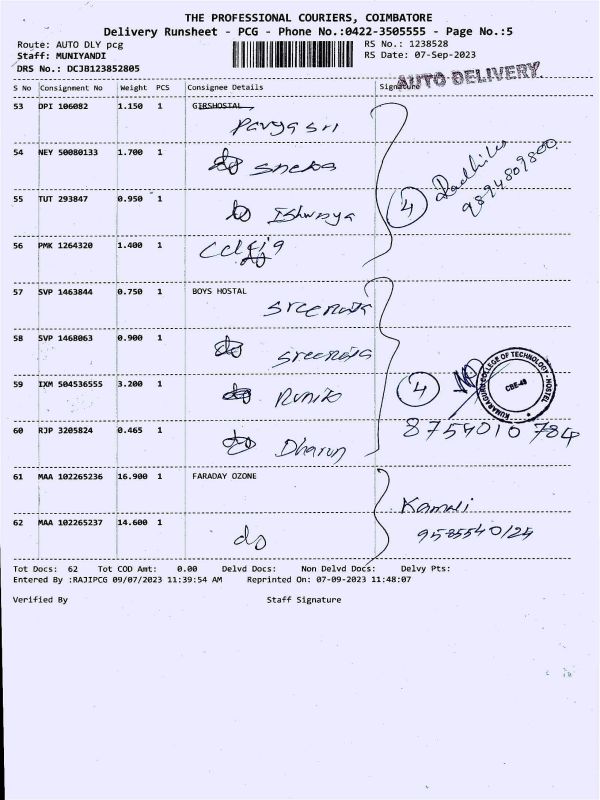 THE PROFESSIONAL COURIERS, COIMBATORE
Delivery Runsheet - PCG - Phone No.:0422-3505555 - Page No.:5
Route: AUTO DLY pcg RS No.: 1238528
Staff: MUNIYANDI RS Date: 07-Sep-2023
DRS No.: DCJB123852805
AUTO DELIVERY
S No Consignment No Weight PCS Consignee Details Signature
53 DPI 106082 1.150 1 GIRSHOSTAL
Pavya sri
54 NEY 50080133 1.700 1
do sneka
Radhika
9894809800
55 TUT 293847 0.950 1
do Ishwarya
4
56 PMK 1264320 1.400 1
do
57 SVP 1463844 0.750 1 BOYS HOSTAL
58 SVP 1468063 0.900 1
do
59 IXM 504536555 3.200 1
do
4
KUMARAGURU COLLEGE OF TECHNOLOGY - HOSTEL
CBE-49
60 RJP 3205824 0.465 1
do Dharun
8754010784
61 MAA 102265236 16.900 1 FARADAY OZONE
Kamali
62 MAA 102265237 14.600 1
do
9585540124
Tot Docs: 62 Tot COD Amt: 0.00 Delvd Docs: Non Delvd Docs: Delvy Pts:
Entered By :RAJIPCG 09/07/2023 11:39:54 AM Reprinted On: 07-09-2023 11:48:07
Verified By Staff Signature